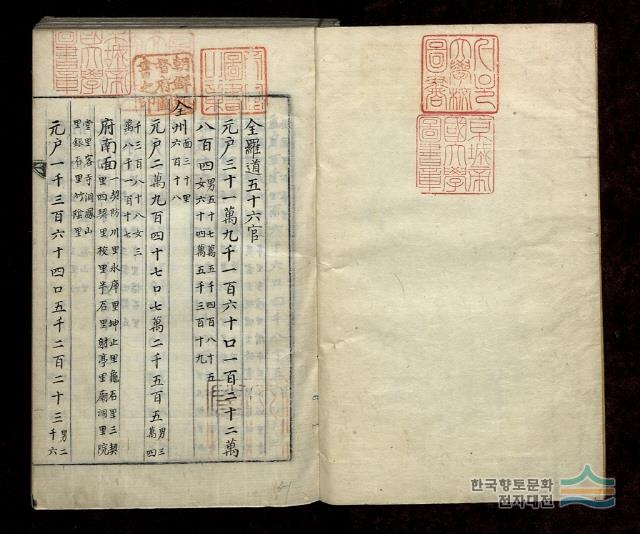 全羅道五十六官
元戶三十一萬九千一百六十口一百二十二萬
八百四男五十七萬五千四百八十五
女六十四萬五千三百十九
全州面三十里
六百十八
元戶二萬九百四十七口七萬二千五百五男三萬四
千三百八十八女三
萬八千一百十七
府南面一契防川里永庫里坤止里龜石里三契
里四契里校里半石里射亭里廟洞里院
堂里客寺洞鳳山
里銀石里竹陰里
元戶一千三百六十四口五千二百二十三男二
千六
朝鮮總督府圖書之印
京城帝國大學圖書章
한국향토문화
전자대전